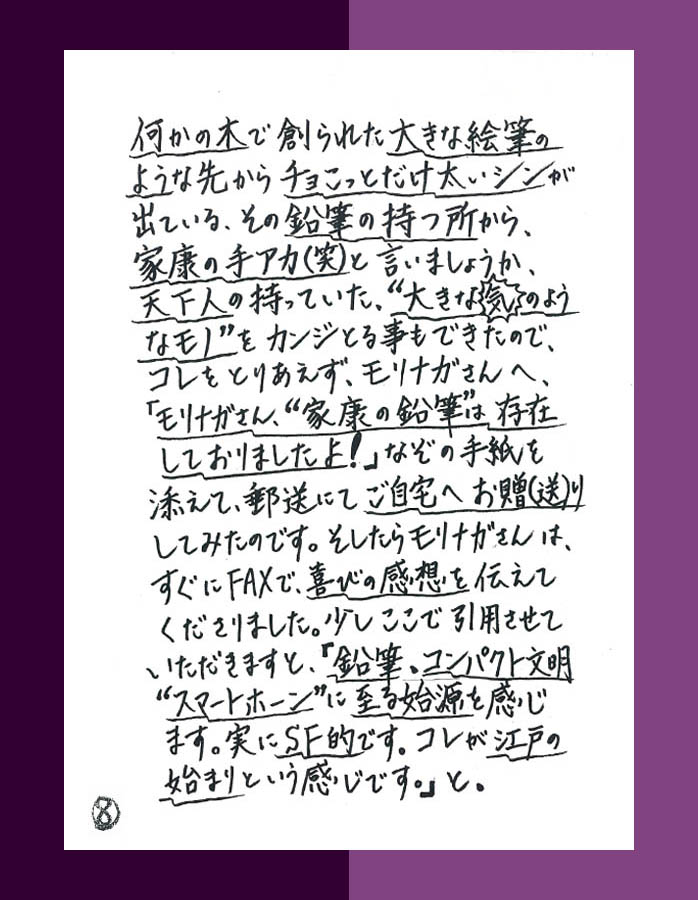 何かの木で創られた大きな絵筆の
ような先からチョこっとだけ太いシンが
出ている、その鉛筆の持つ所から、
家康の手アカ(笑)と言いましょうか、
天下人の持っていた、“大きな気のよう
なモノ”をカンジとる事もできたので、
コレをとりあえず、モリナガさんへ、
「モリナガさん、“家康の鉛筆”は存在
しておりましたよ!」なぞの手紙を
添えて、郵送にてご自宅へお贈(送)り
してみたのです。そしたらモリナガさんは、
すぐにFAXで、喜びの感想を伝えて
くださりました。少しここで引用させて
いただきますと、『鉛筆、コンパクト文明
“スマートホーン”に至る始源を感じ
ます。実にSF的です。コレが江戸の
始まりという感じです。』と。
8